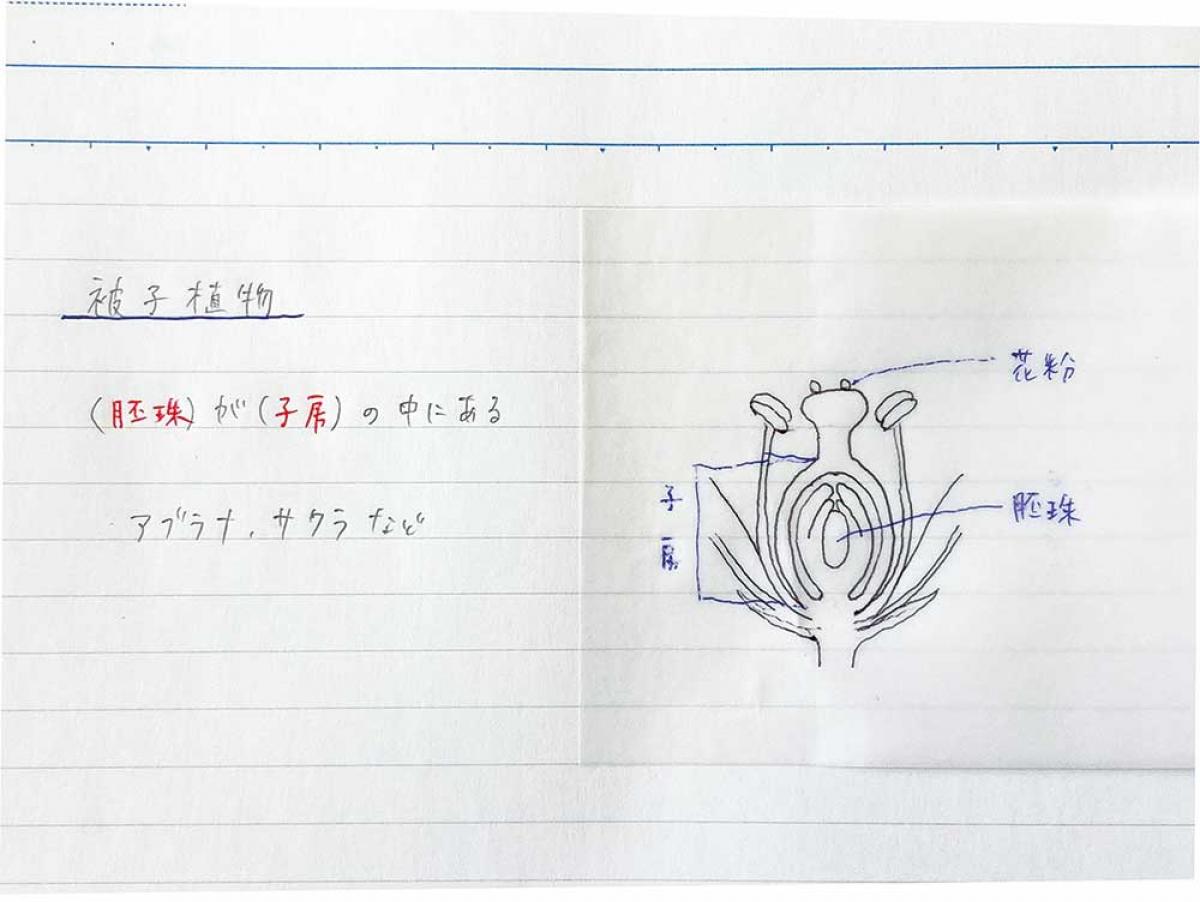 被子植物
(胚珠)が(子房)の中にある
アブラナ、サクラなど
花粉
子房
胚珠